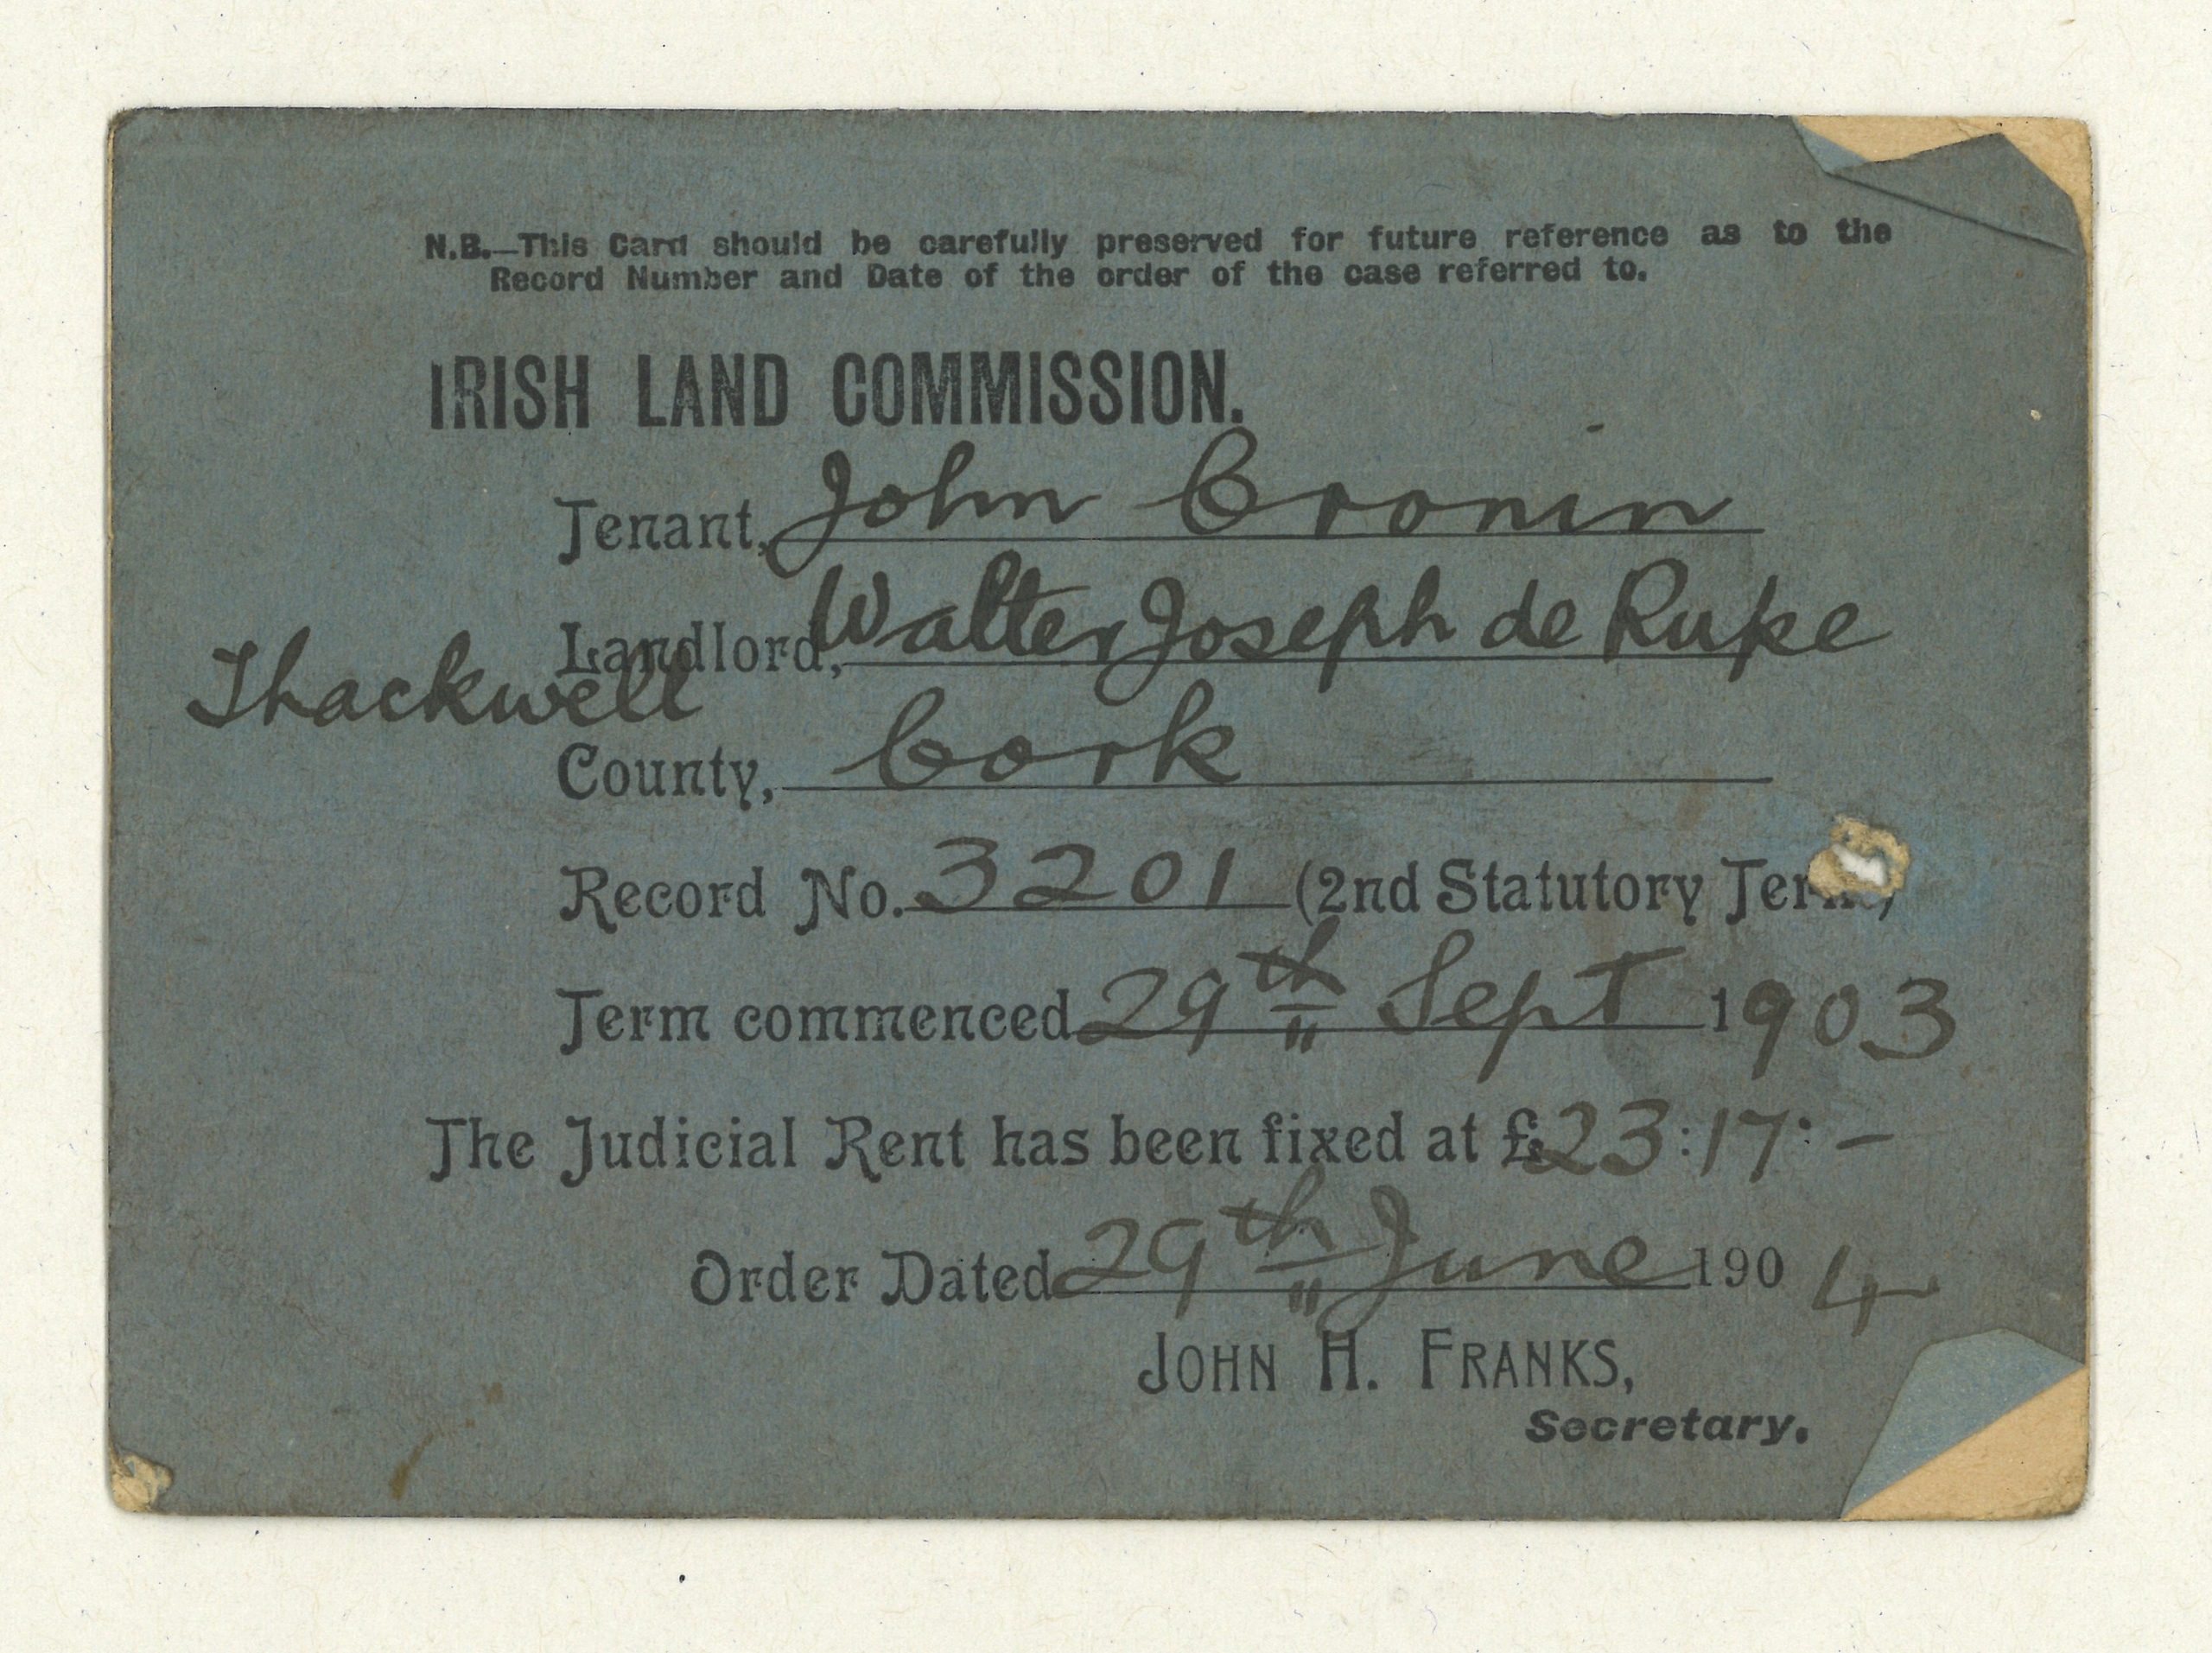 N.B.—This Card should be carefully preserved for future reference as to the
Record Number and Date of the order of the case referred to.
IRISH LAND COMMISSION.
Tenant, John Cronin
Landlord, Walter Joseph de Rupe
Thackwell
County, Cork
Record No. 3201 (2nd Statutory Term)
Term commenced 29th Sept 1903
The Judicial Rent has been fixed at £23:17:-
Order Dated 29th June 1904
JOHN H. FRANKS,
Secretary.